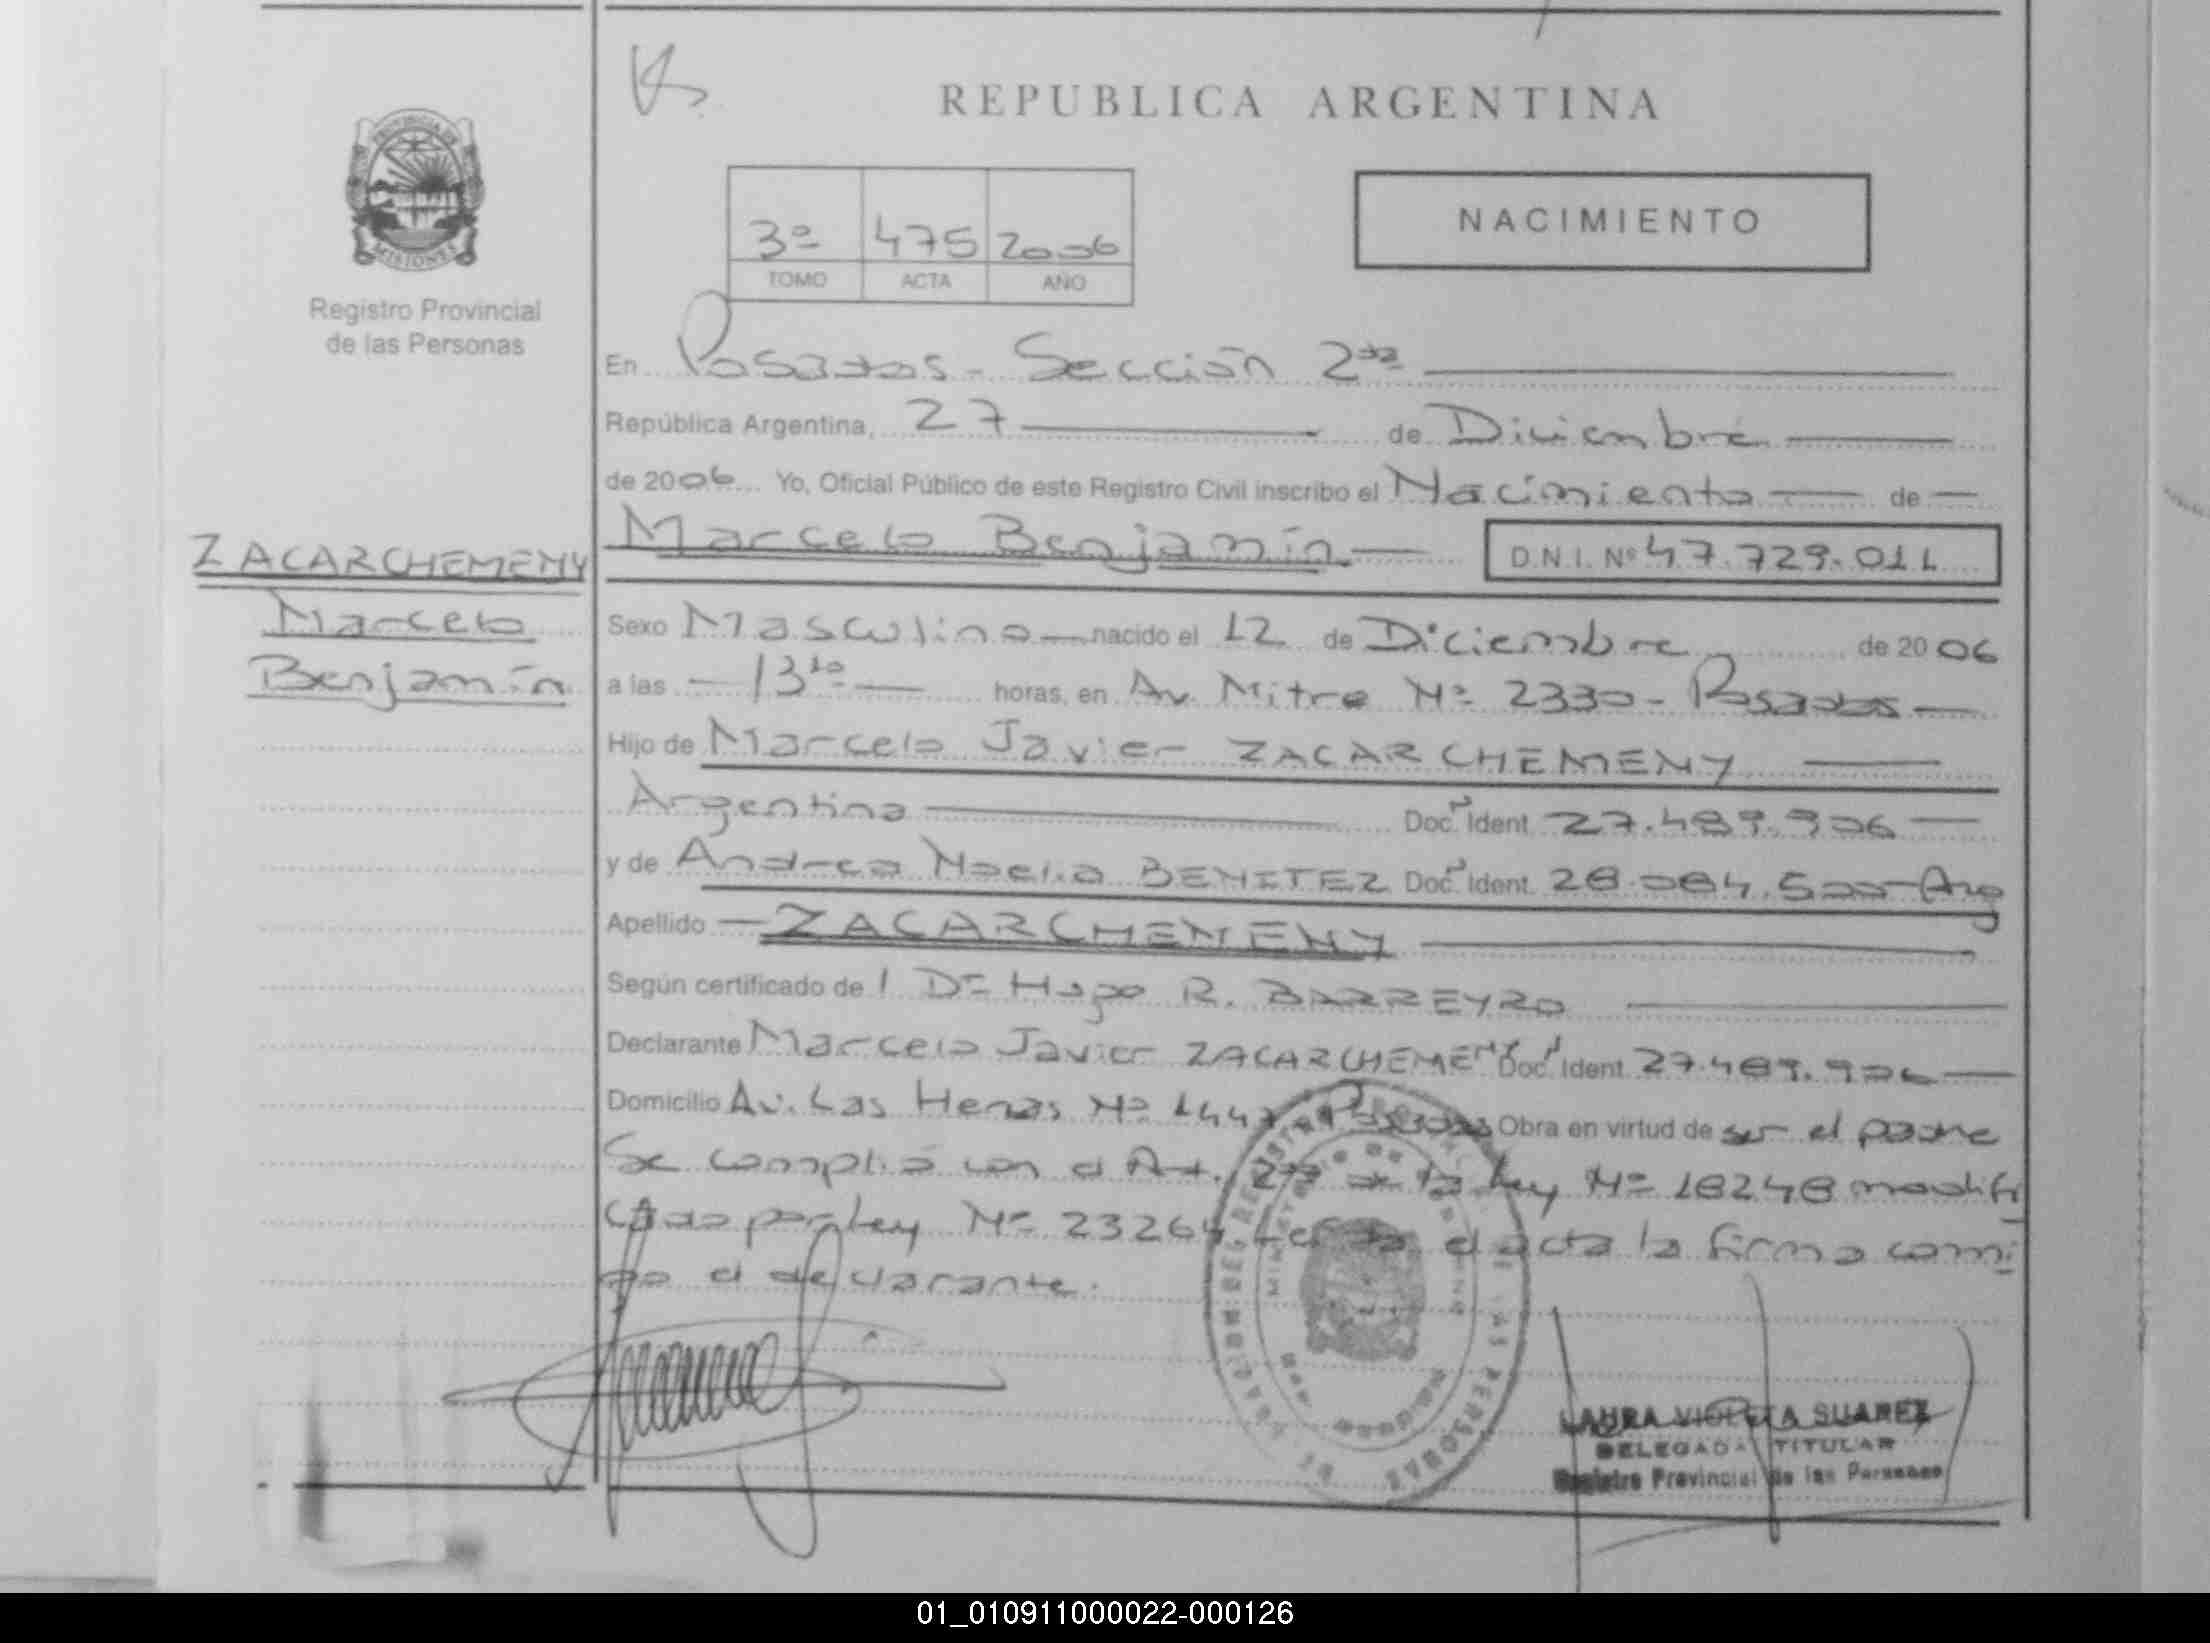 REPUBLICA ARGENTINA
PROVINCIA DE
MISIONES
Registro Provincial
de las Personas
3º 475 2006
TOMO ACTA AÑO
NACIMIENTO
En Posadas - Sección 2da
República Argentina, 27 de Diciembre
de 2006 Yo, Oficial Público de este Registro Civil inscribo el Nacimiento de
Marcelo Benjamín D.N.I. Nº 47.729.011
ZACARCHEMENY
Marcelo
Benjamín
Sexo Masculino nacido el 12 de Diciembre de 2006
a las 13 horas, en Av. Mitre Nº 2330 - Posadas
Hijo de Marcelo Javier ZACARCHEMENY
Argentino Doc. Ident. 27.489.906
y de Andrea Noelia BENITEZ Doc. Ident. 28.084.500 Arg
Apellido ZACARCHEMENY
Según certificado de l Dr Hugo R. BARREYRO
Declarante Marcelo Javier ZACARCHEMENY Doc. Ident. 27.489.906
Domicilio Av. Las Heras Nº 1447 - Posadas Obra en virtud de ser el padre
Se complió con el Art. 2do de la Ley Nº 18248 modifi
cado por Ley Nº 23264 el acta la firma conmi
go el declarante.
LAURA VIOLETA SUAREZ
DELEGADA TITULAR
Registro Provincial de las Personas
01_010911000022-000126